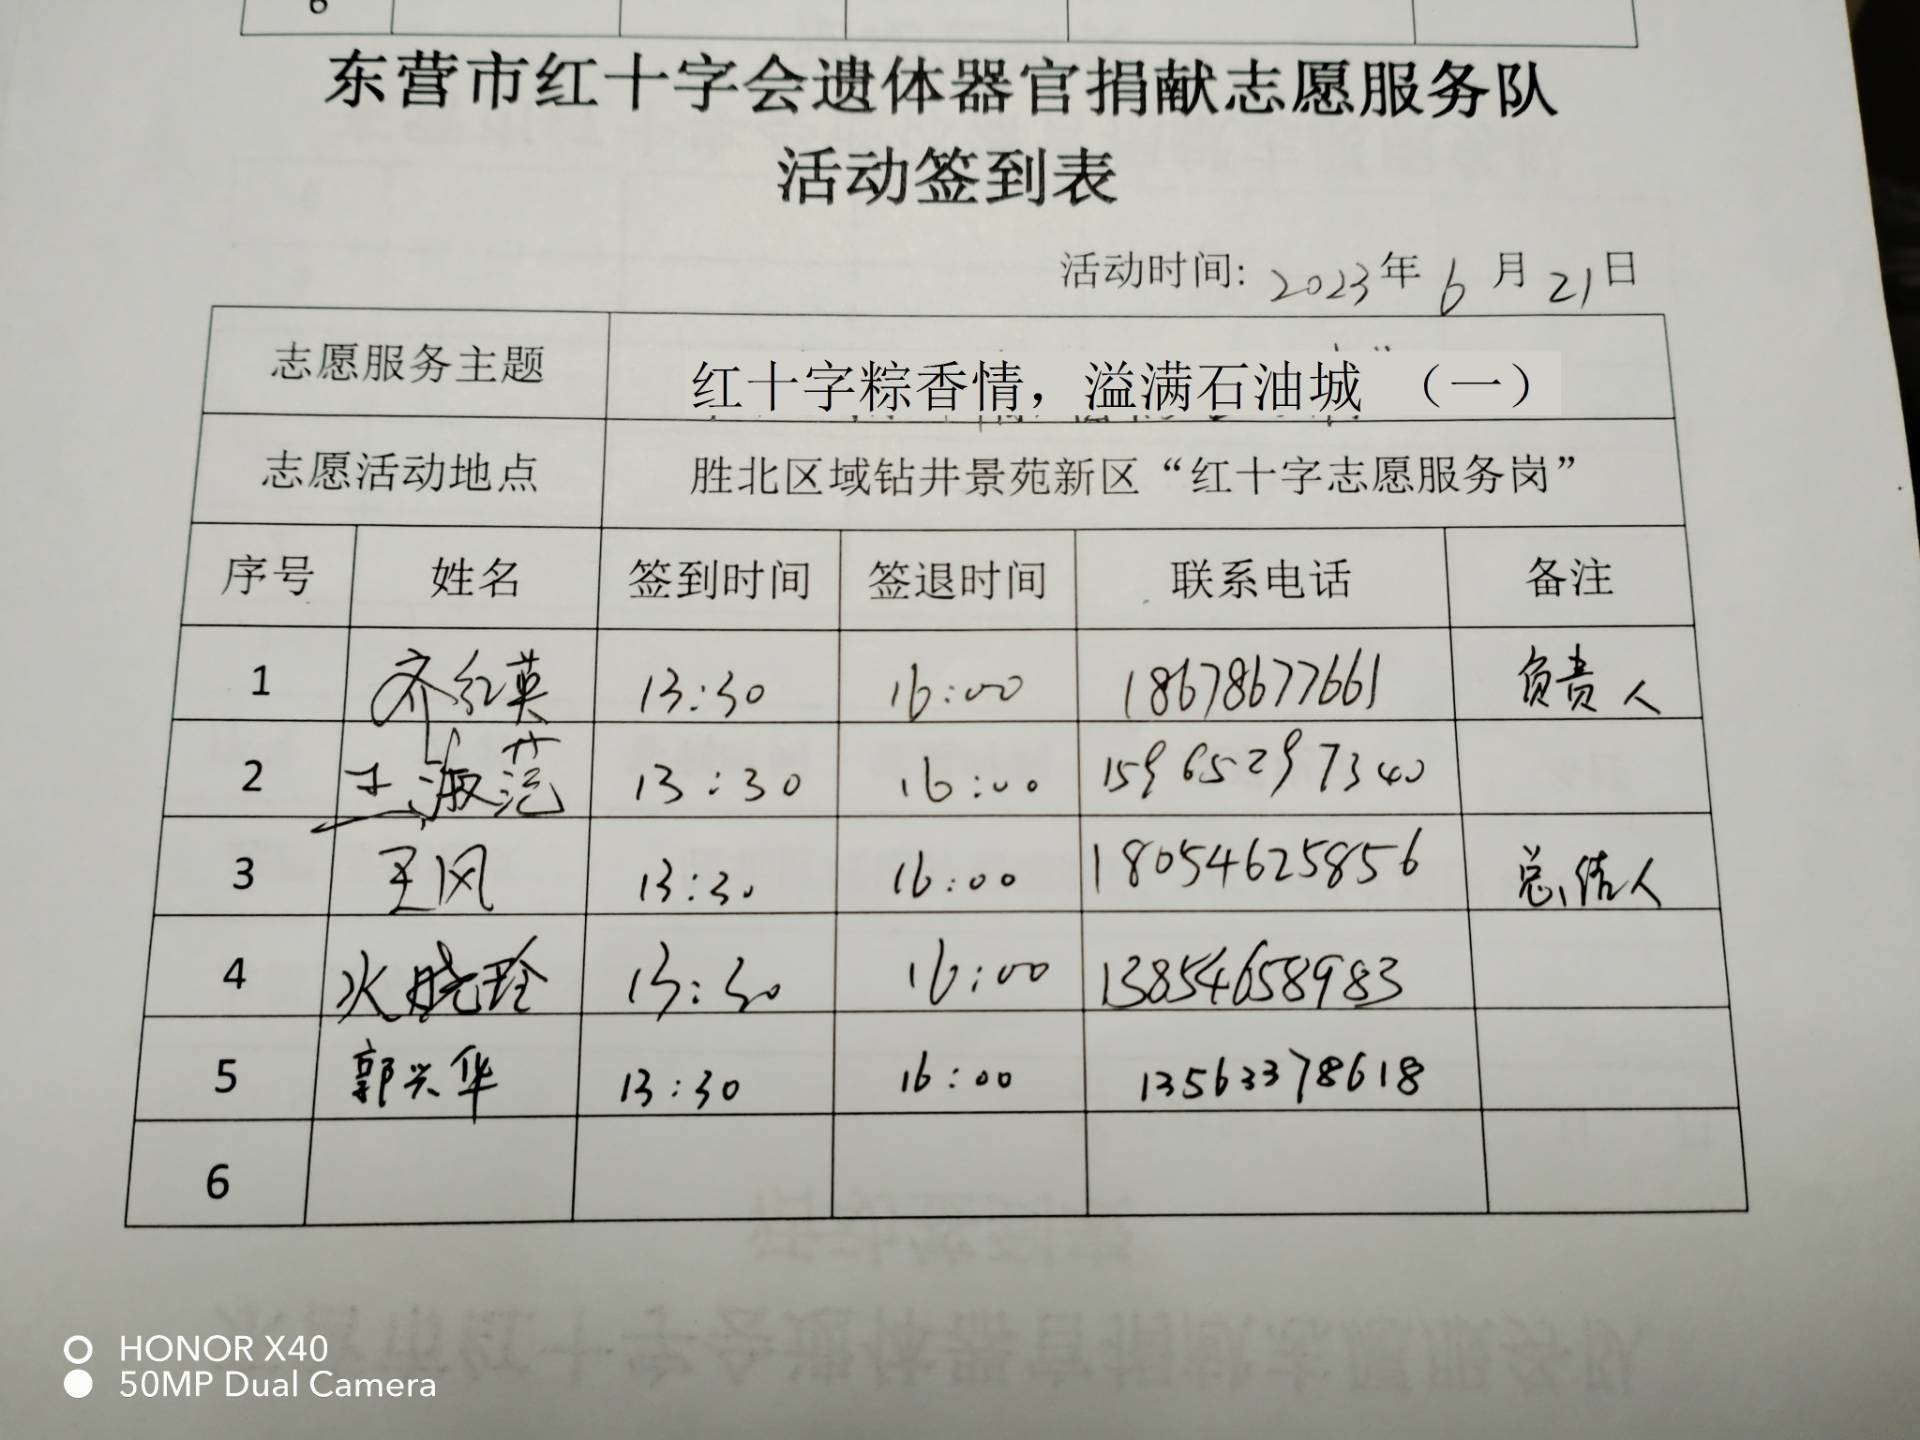 6
东营市红十字会遗体器官捐献志愿服务队
活动签到表
活动时间: 2023年 6 月 21日
志愿服务主题 红十字粽香情，溢满石油城 （一）
志愿活动地点 胜北区域钻井景苑新区“红十字志愿服务岗”
序号 姓名 签到时间 签退时间 联系电话 备注
1 齐红英 13:30 16:00 18678677661 负责人
2 王淑范 13:30 16:00 15965297340
3 王风 13:30 16:00 18054625856 总结人
4 13:30 16:00 13854658983
5 郭兴华 13:30 16:00 13563378618
6
HONOR X40
50MP Dual Camera